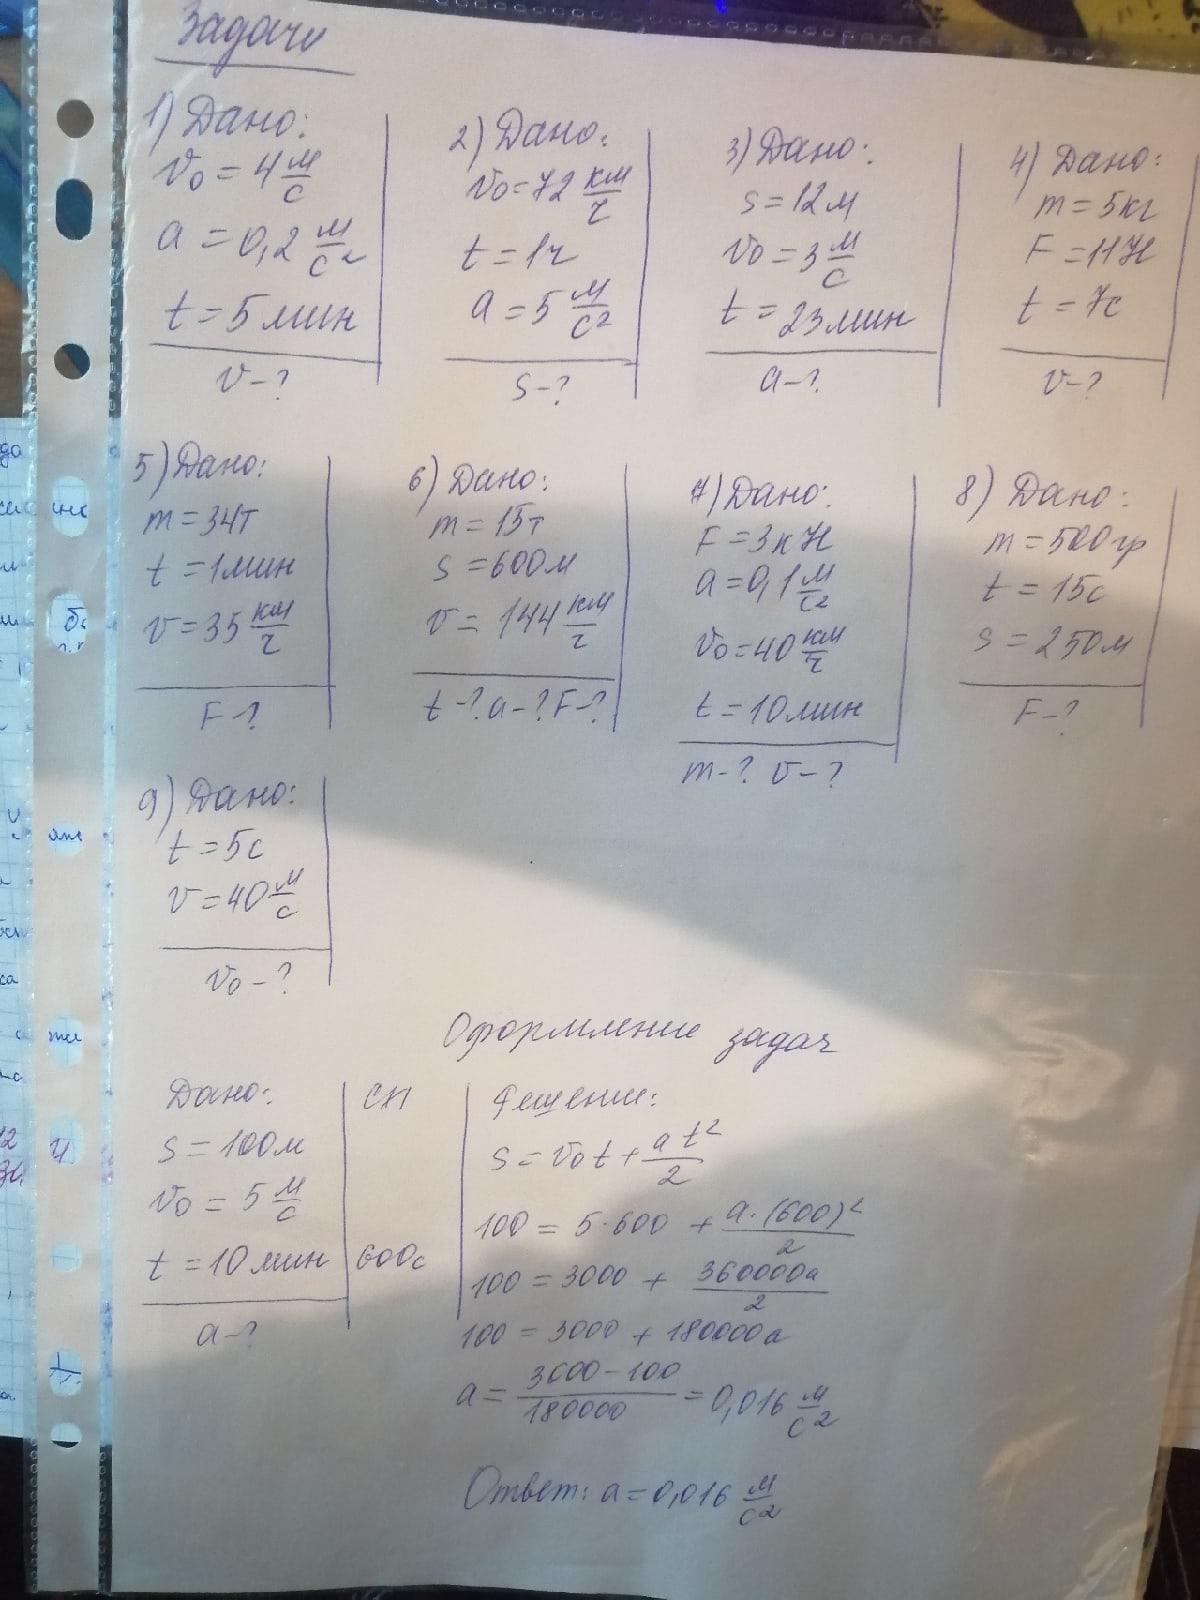 Задачи
1) Дано:
v₀ = 4 м/с
a = 0,2 м/с²
t = 5 мин
v - ?
2) Дано:
v₀ = 72 км/ч
t = 1ч
a = 5 м/с²
s - ?
3) Дано:
s = 12 м
v₀ = 3 м/с
t = 23 мин
a - ?
4) Дано:
m = 5 кг
F = 11 Н
t = 7с
v - ?
5) Дано:
m = 34т
t = 1 мин
v = 35 км/ч
F - ?
6) Дано:
m = 15т
s = 600м
v = 144 км/ч
t - ? a - ? F - ?
7) Дано:
F = 3 кН
a = 0,1 м/с²
v₀ = 40 км/ч
t = 10 мин
m - ? v - ?
8) Дано:
m = 500 гр
t = 15с
s = 250м
F - ?
9) Дано:
t = 5с
v = 40 м/с
v₀ - ?
Оформление задач
Дано:
s = 100м
v₀ = 5 м/с
t = 10 мин
a - ?
СИ
600с
Решение:
s = v₀t + at²/2
100 = 5·600 + a·(600)²/2
100 = 3000 + 360000a/2
100 = 3000 + 180000a
a = 3000 - 100/180000 = 0,016 м/с²
Ответ: a = 0,016 м/с²